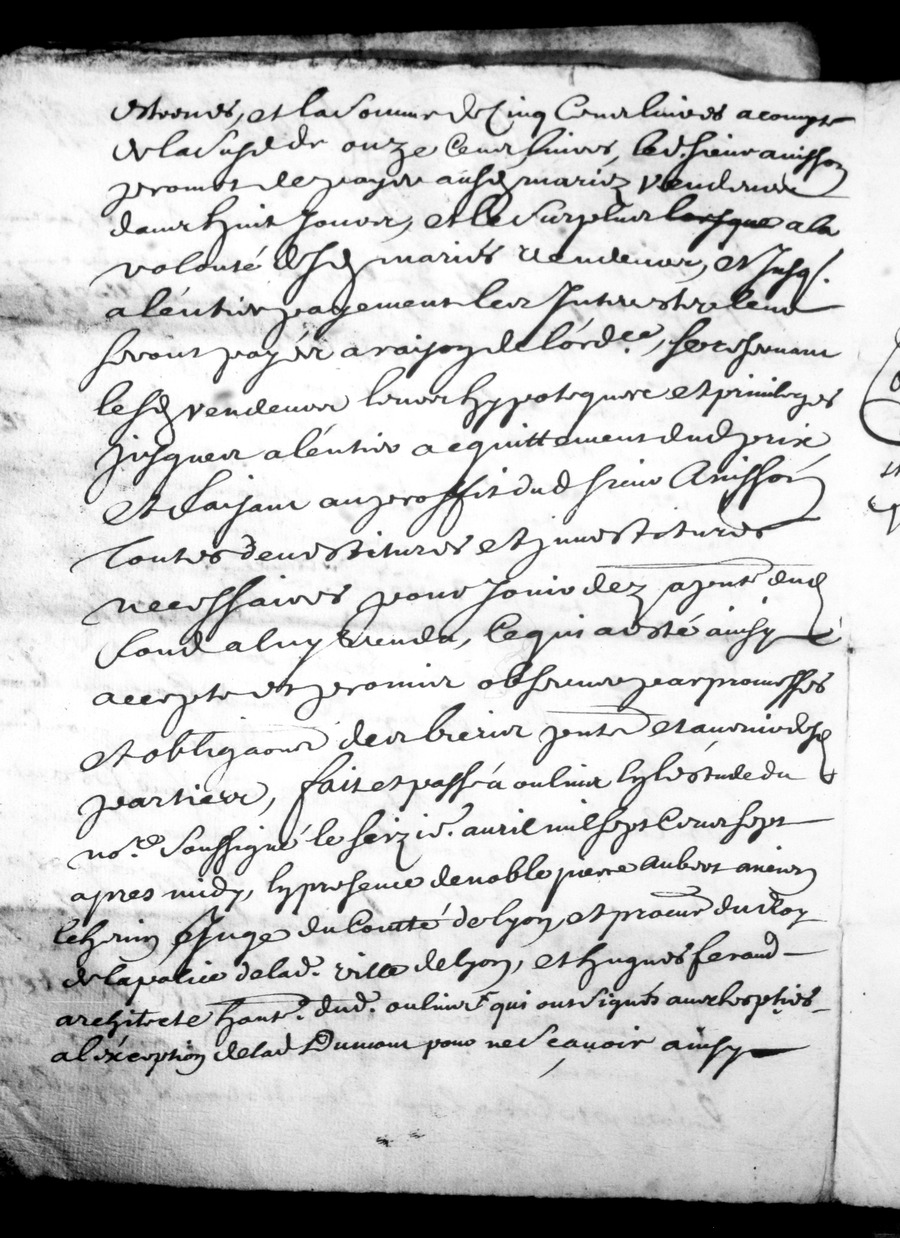 et la somme de Cinq Cent livres a compte
de la Susd de onze Cent livres, led. sieur anisson
promet de payer ausd mariez vendeurs
dans huit Jours, et le surplus lorsque a la
volonté desd mariés vendeurs, et Jusq.
a l'entier payement les Interests leur
seront payés a raison de l'ord.ce, se reservant
lesd vendeurs leurs hypoteques et privileges
jusques a l'entier acquittement dud prix
et faisant au proffit dud sieur Anisson
Toutes devestitures et investitures
necessaires pour Jouir dez apnt dud
fond a luy vendu, ce qui a esté ainsy
accepte et promis observer par promesses
et obligaons de biens pnts et avenir desd
parties, fait et passé a oulins l'estude du
no.re Soussigné le seizie. avril mil sept Cens sept
apres midy, presence de noble pierre Aubert ancien
Echevin Juge du Comté de Lyon, et procur du Roy
de la police de lad. ville de Lyon, et hugues ferand
architecte hant. dud. oulins qui ont signés avec les pties
a l'exception de lad Dumont pour ne Scavoir ainsy